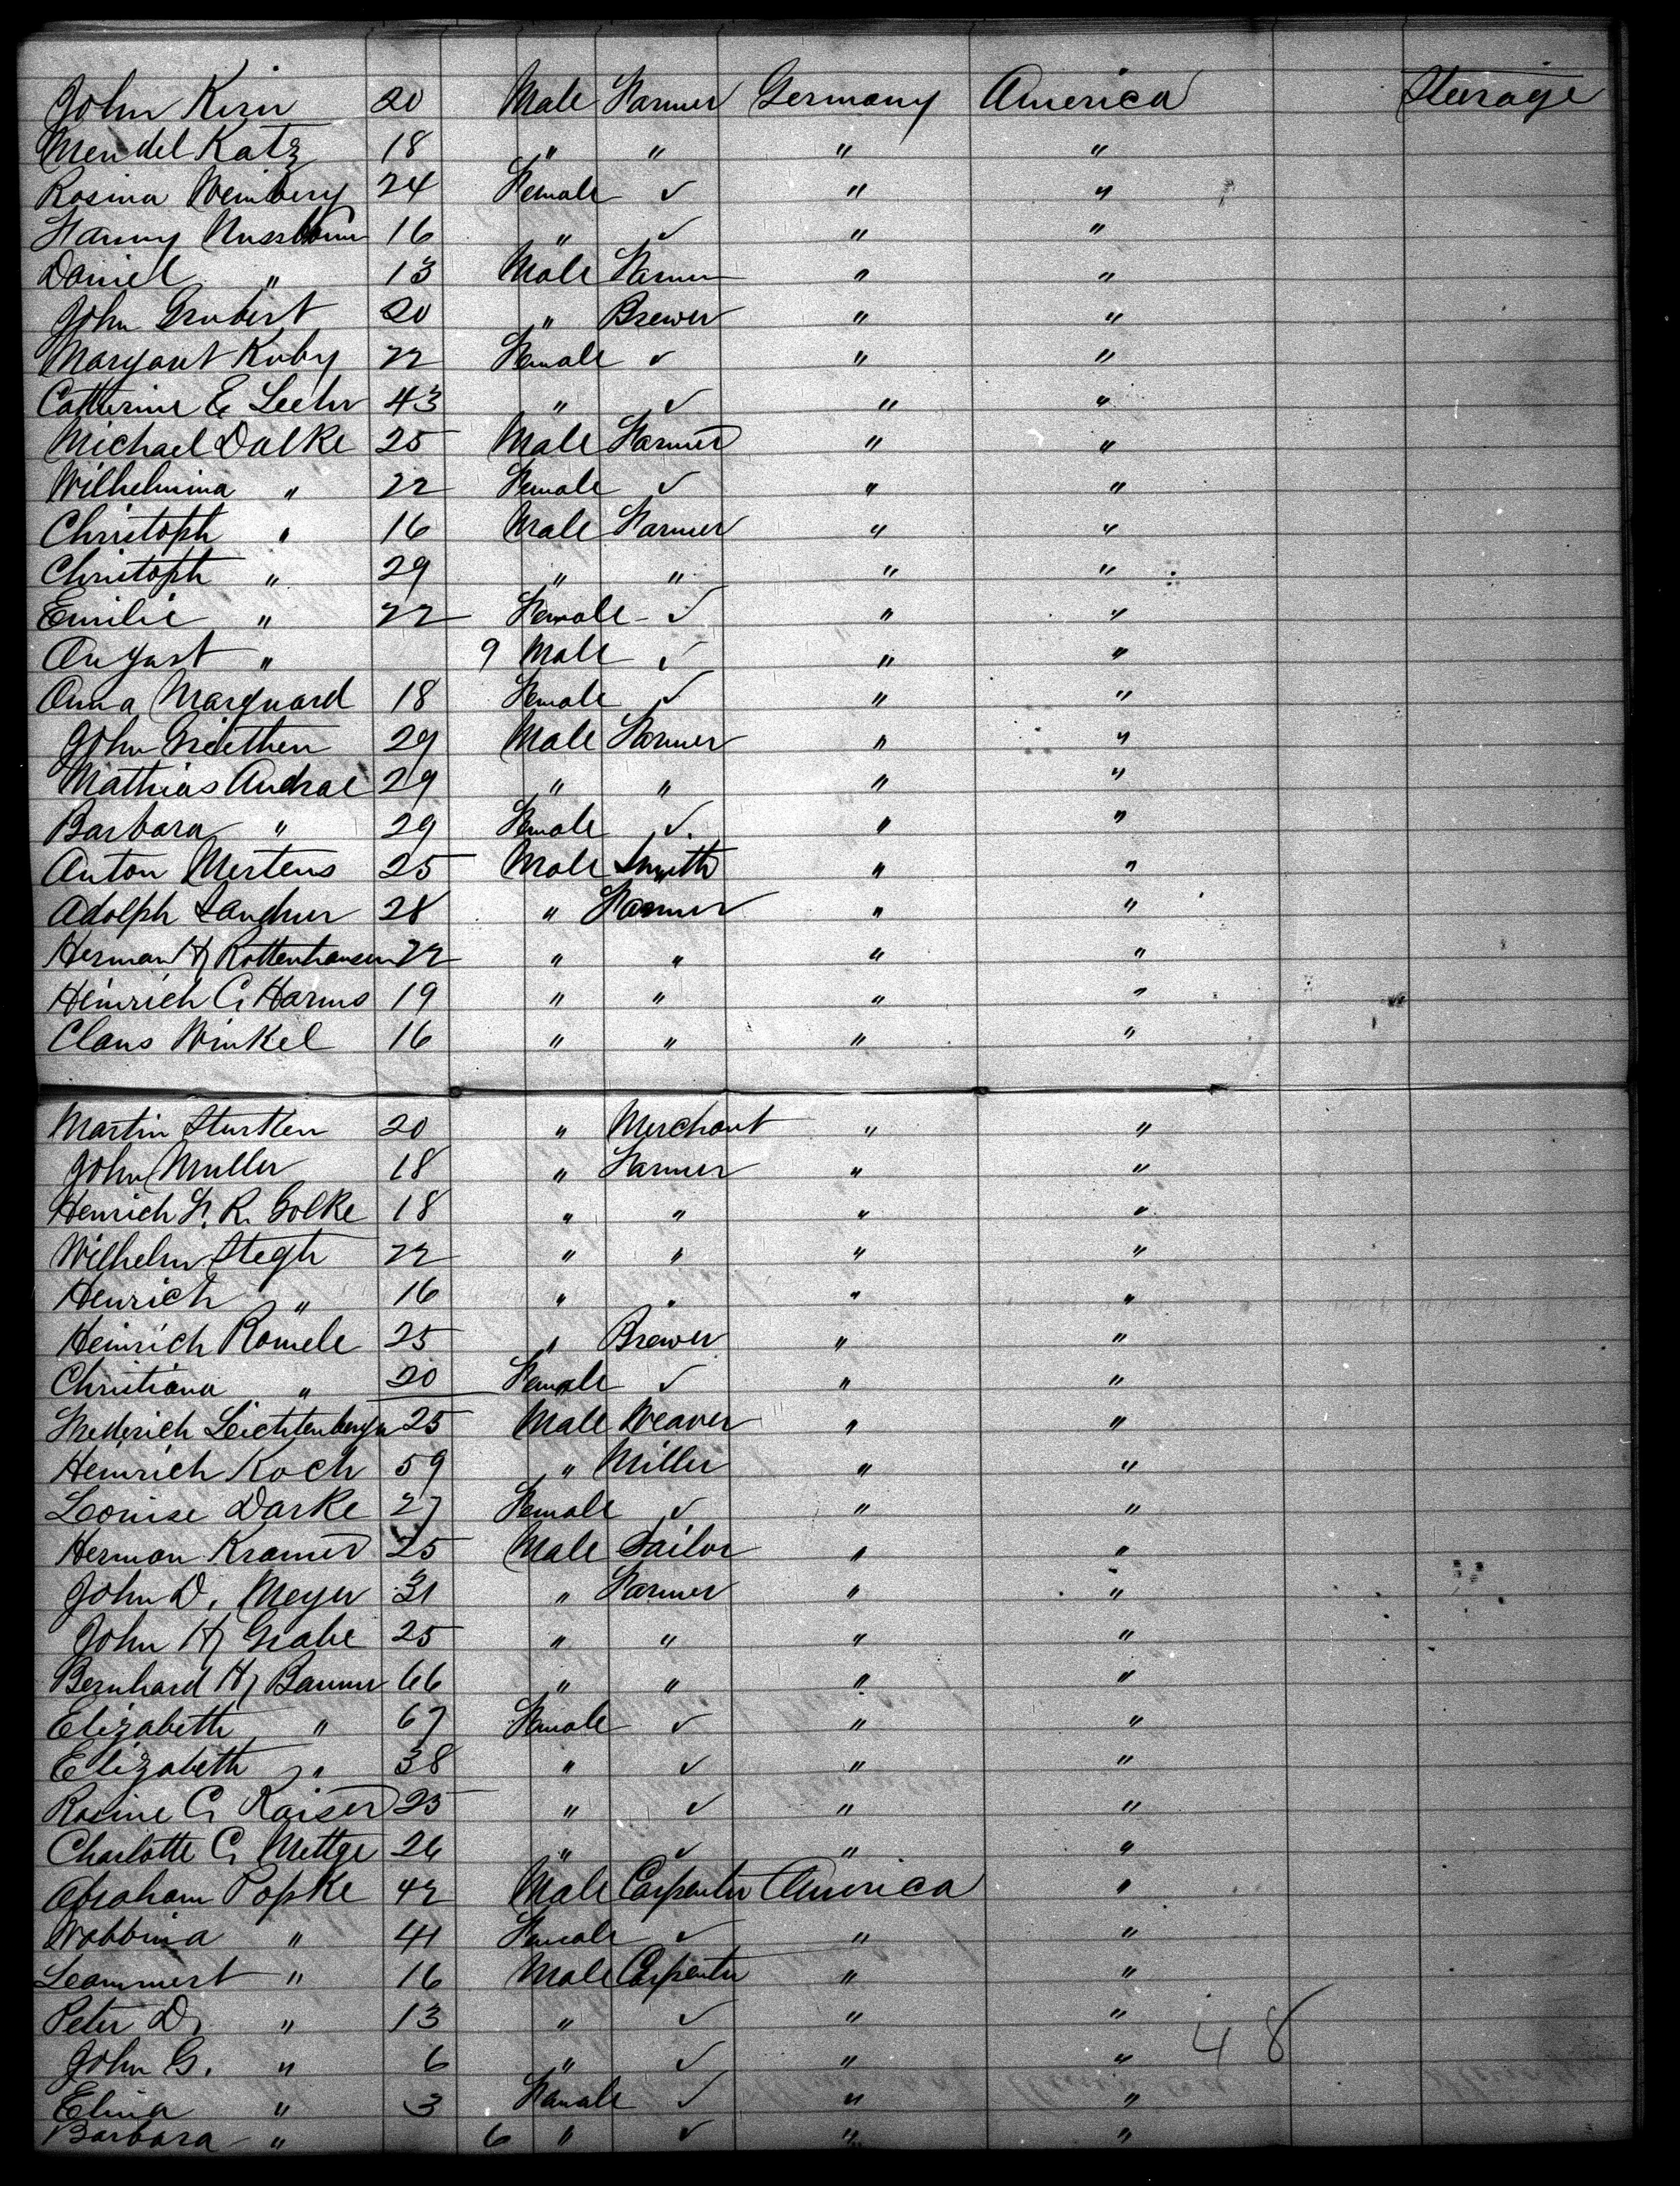 John Kirn 20 Male Farmer Germany America Steerage
Mendel Katz 18 " " " "
Rosina Weinberg 24 Female ✓ " "
Fanny Nussbaum 16 " ✓ " "
Daniel " 13 Male Farmer " "
John Grubert 20 " Brewer " "
Margaret Ruby 22 Female ✓ " "
Catherine E Leehr 43 " ✓ " "
Michael Dalke 25 Male Farmer " "
Wilhelmina " 22 Female ✓ " "
Christoph " 16 Male Farmer " "
Christoph " 29 " " " "
Emilie " 22 Female ✓ " "
August " 9 Male ✓ " "
Anna Marquard 18 Female ✓ " "
John Griethen 29 Male Farmer " "
Mathias Andrae 29 " " " "
Barbara " 29 Female ✓ " "
Anton Mertens 25 Male Smith " "
Adolph 28 " Farmer " "
Herman H Rottenhausen 22 " " " "
Heinrich C Harms 19 " " " "
Claus Winkel 16 " " " "
Martin Sturken 20 " Merchant " "
John Muller 18 " Farmer " "
Henrich F. R. Golke 18 " " " "
Wilhelm Stegh 22 " " " "
Henrich " 16 " " " "
Heinrich Romele 25 " Brewer " "
Christiana " 20 Female ✓ " "
Frederich Leichtenberger 25 Male Weaver " "
Heinrich Koch 59 " Miller " "
Louise Darke 27 Female ✓ " "
Herman Kramer 25 Male Tailor " "
John D. Meyer 31 " Farmer " "
John H Grabe 25 " " " "
Bernhard H 66 " " " "
Elizabeth " 67 Female ✓ " "
Elizabeth " 38 " ✓ " "
Rosine C Kaiser 25 " ✓ " "
Charlotte C Mettge 26 " ✓ " "
Abraham Popke 42 Male Carpenter America "
Wobbina " 41 Female ✓ " "
Leammert " 16 Male Carpenter " "
Peter D. " 13 " ✓ " "
John G. " 6 " ✓ " " 48
Elina " 3 Female ✓ " "
Barbara " 6 " ✓ " "